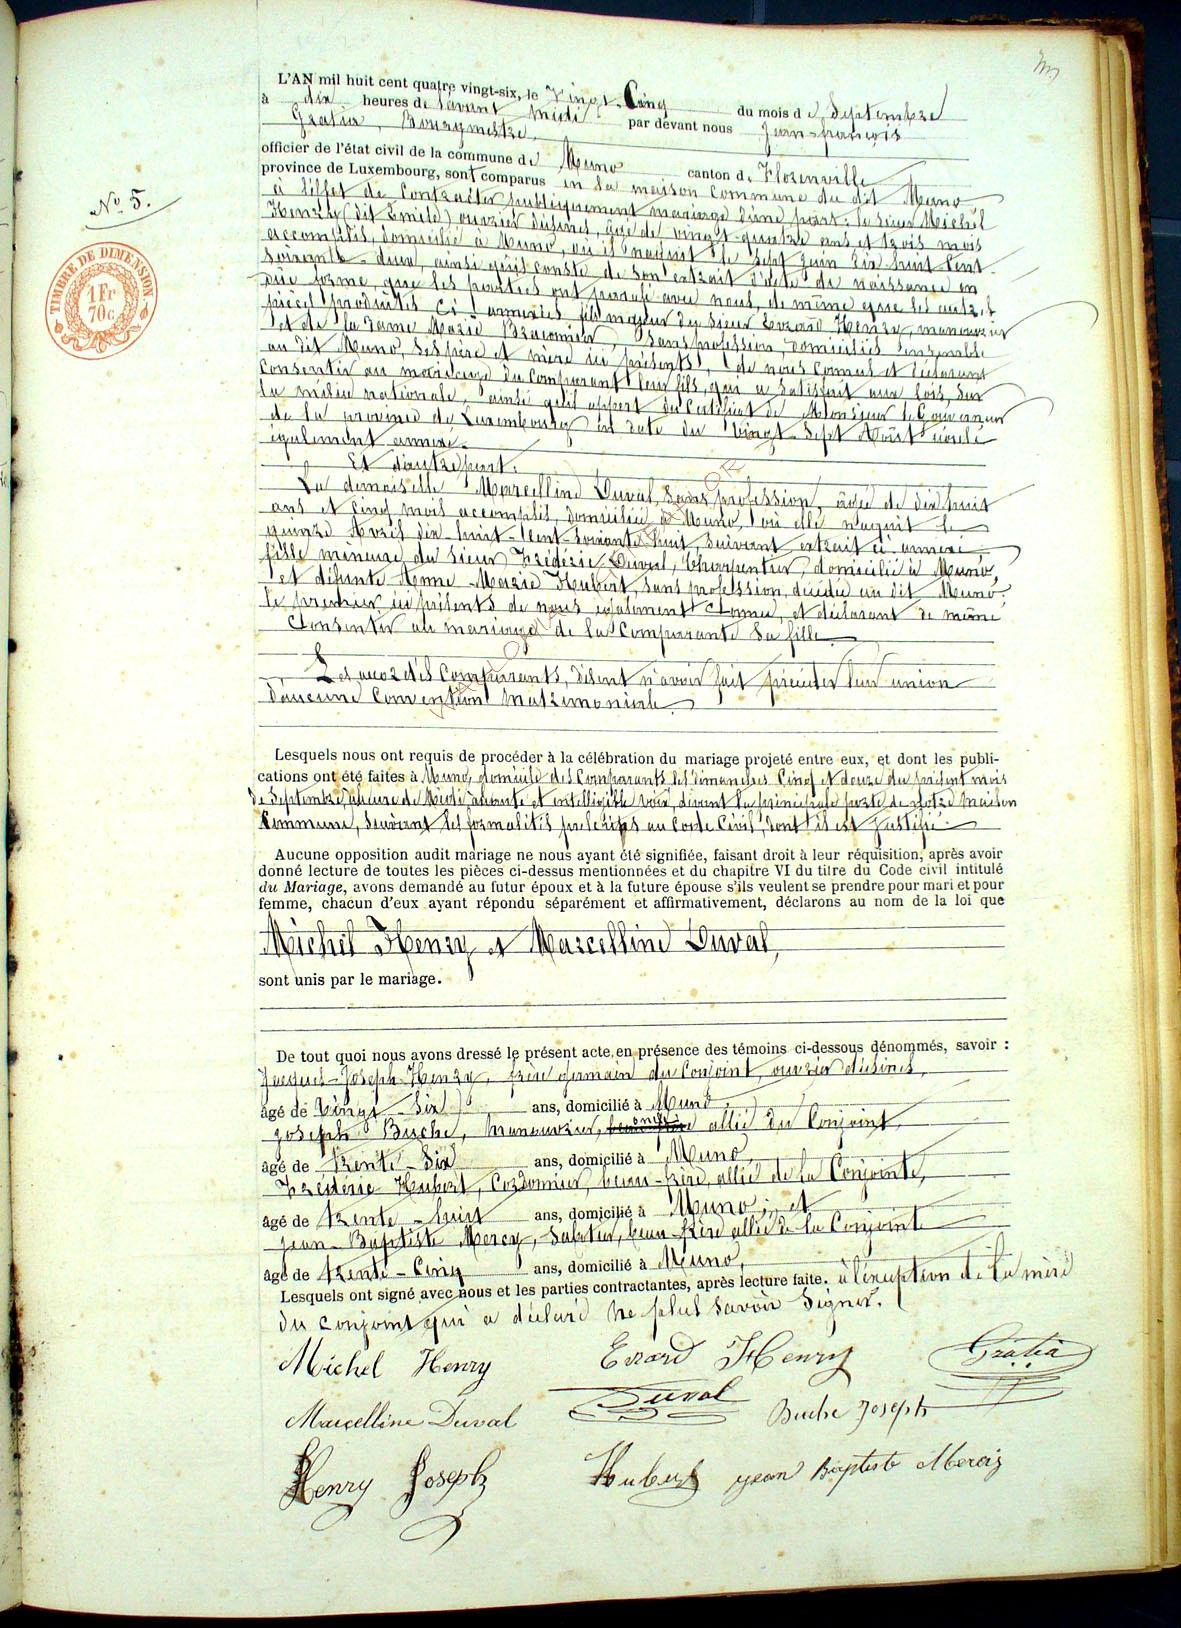 N° 5.
TIMBRE DE DIMENSION
1 Fr
70 c
L'AN mil huit cent quatre vingt-six, le Vingt-Cinq du mois de Septembre
à dix heures de l'avant midi par devant nous Jean-françois
Gratia, Bourgmestre,
officier de l'état civil de la commune de Muno canton de Florenville
province de Luxembourg, sont comparus en la maison commune du dit Muno
à l'effet de Contracter publiquement mariage d'une part: le sieur Michel
Henry (dit Emile) ouvrier d'usines, âgé de vingt-quatre ans et trois mois
accomplis, domicilié à Muno, où il naquit le sept Juin dix huit Cent
soixante-deux, ainsi qu'il conste de son extrait d'acte de naissance en
due forme, que les parties ont paraphé avec nous, de même que les autres
pièces produites Ci-annexées fils majeur du sieur Evrard Henry, manouvrier
et de la Dame Marie Braconnier, sans profession, domiciliés ensemble
au dit Muno, ses père et mère ici présents, de nous Connus et déclarant
Consentir au mariage du Comparant leur fils, qui a satisfait aux lois, sur
la milice nationale, ainsi qu'il appert du Certificat de Monsieur le Gouverneur
de la province de Luxembourg en date du Vingt-Sept Août écoulé
également annexé.
Et d'autre part:
La demoiselle Marcelline Duval, sans profession, âgée de dix huit
ans et cinq mois accomplis, domiciliée à Muno, où elle naquit le
quinze Avril dix-huit-Cent-soixante huit, suivant extrait ci-annexé,
fille mineure du sieur Frédéric Duval, Charpentier, domicilié à Muno,
et défunte Anne-Marie Hubert, sans profession, décédée au dit Muno:
le premier ici présents de nous également Connu, et déclarant de même
Consentir au mariage de la Comparante sa fille.
Les Comparants, disent n'avoir fait précéder leur union
d'aucune Convention Matrimoniale.
Lesquels nous ont requis de procéder à la célébration du mariage projeté entre eux, et dont les publi-
cations ont été faites à Muno, domicile des Comparants les dimanches Cinq et douze du présent mois
de Septembre, à heure de Midi à haute et intelligible voix, devant la principale porte de notre Maison
Commune, Suivant les formalités prescrites au Code Civil, dont il est justifié.
Aucune opposition audit mariage ne nous ayant été signifiée, faisant droit à leur réquisition, après avoir
donné lecture de toutes les pièces ci-dessus mentionnées et du chapitre VI du titre du Code civil intitulé
du Mariage, avons demandé au futur époux et à la future épouse s'ils veulent se prendre pour mari et pour
femme, chacun d'eux ayant répondu séparément et affirmativement, déclarons au nom de la loi que
Michel Henry et Marcelline Duval,
sont unis par le mariage.
De tout quoi nous avons dressé le présent acte, en présence des témoins ci-dessous dénommés, savoir :
Jacques-Joseph Henry, frère germain du Conjoint, ouvrier d'usines,
âgé de Vingt-Six ans, domicilié à Muno,
Joseph Buche, Manouvrier, allié du Conjoint,
âgé de trente-Six ans, domicilié à Muno,
Frédéric Hubert, Cordonnier, beau-frère, allié de la Conjointe,
âgé de trente-huit ans, domicilié à Muno; et
Jean-Baptiste Mercy, Sabotier, beau-frère allié de la Conjointe
âgé de trente-Cinq ans, domicilié à Muno,
Lesquels ont signé avec nous et les parties contractantes, après lecture faite. à l'exception de la mère
du conjoint qui a déclaré ne plus savoir signer.
Michel Henry Evrard Henry Gratia
Marcelline Duval Duval Buche Joseph
Henry Joseph Hubert Jean Baptiste Mercy